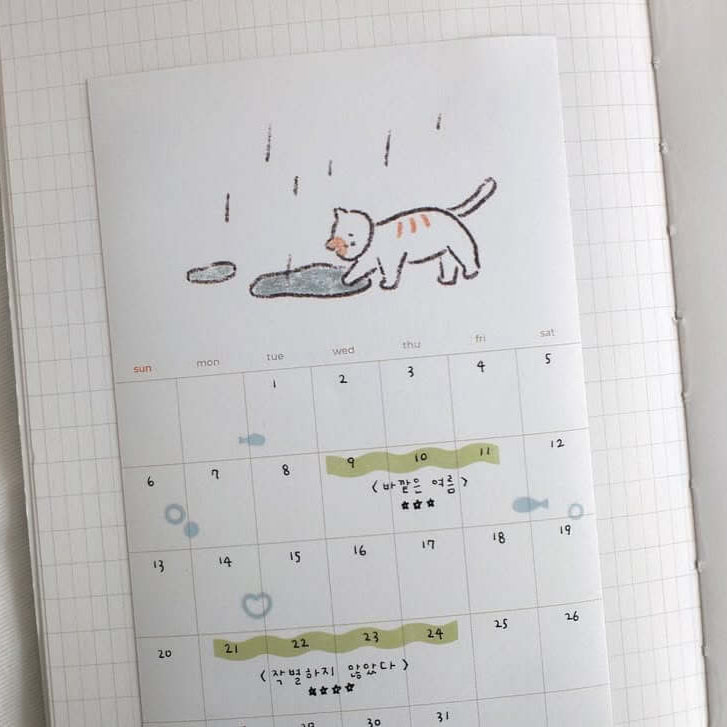 sun mon tue wed thu fri sat
1 2 3 4 5
6 7 8 9 10 11 12
<바깥은 여름>
★★★
13 14 15 16 17 18 19
20 21 22 23 24 25 26
<작별하지 않았다>
★★★★
29 30 31